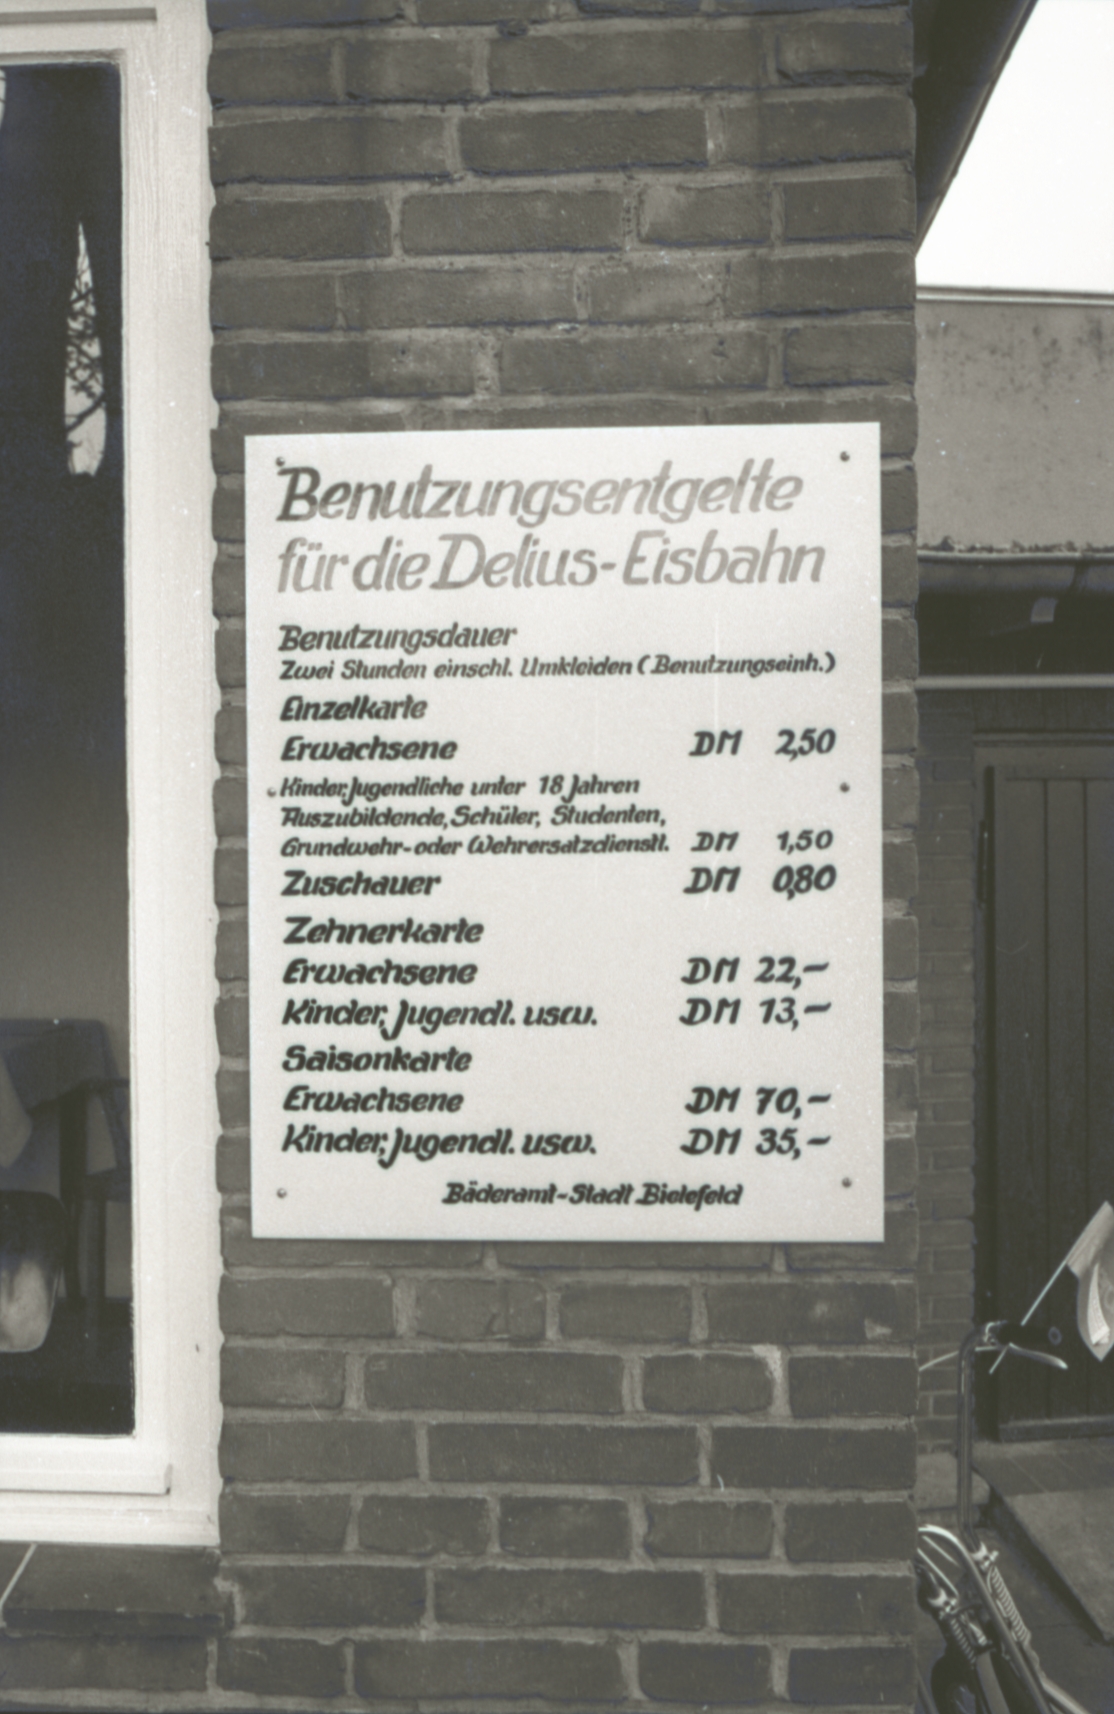 Benutzungsentgelte
für die Delius-Eisbahn
Benutzungsdauer
Zwei Stunden einschl. Umkleiden (Benutzungseinh.)
Einzelkarte
Erwachsene DM 2,50
Kinder, Jugendliche unter 18 Jahren
Auszubildende, Schüler, Studenten,
Grundwehr- oder Wehrersatzdienstl. DM 1,50
Zuschauer DM 0,80
Zehnerkarte
Erwachsene DM 22,-
Kinder, Jugendl. usw. DM 13,-
Saisonkarte
Erwachsene DM 70,-
Kinder, Jugendl. usw. DM 35,-
Bäderamt-Stadt Bielefeld